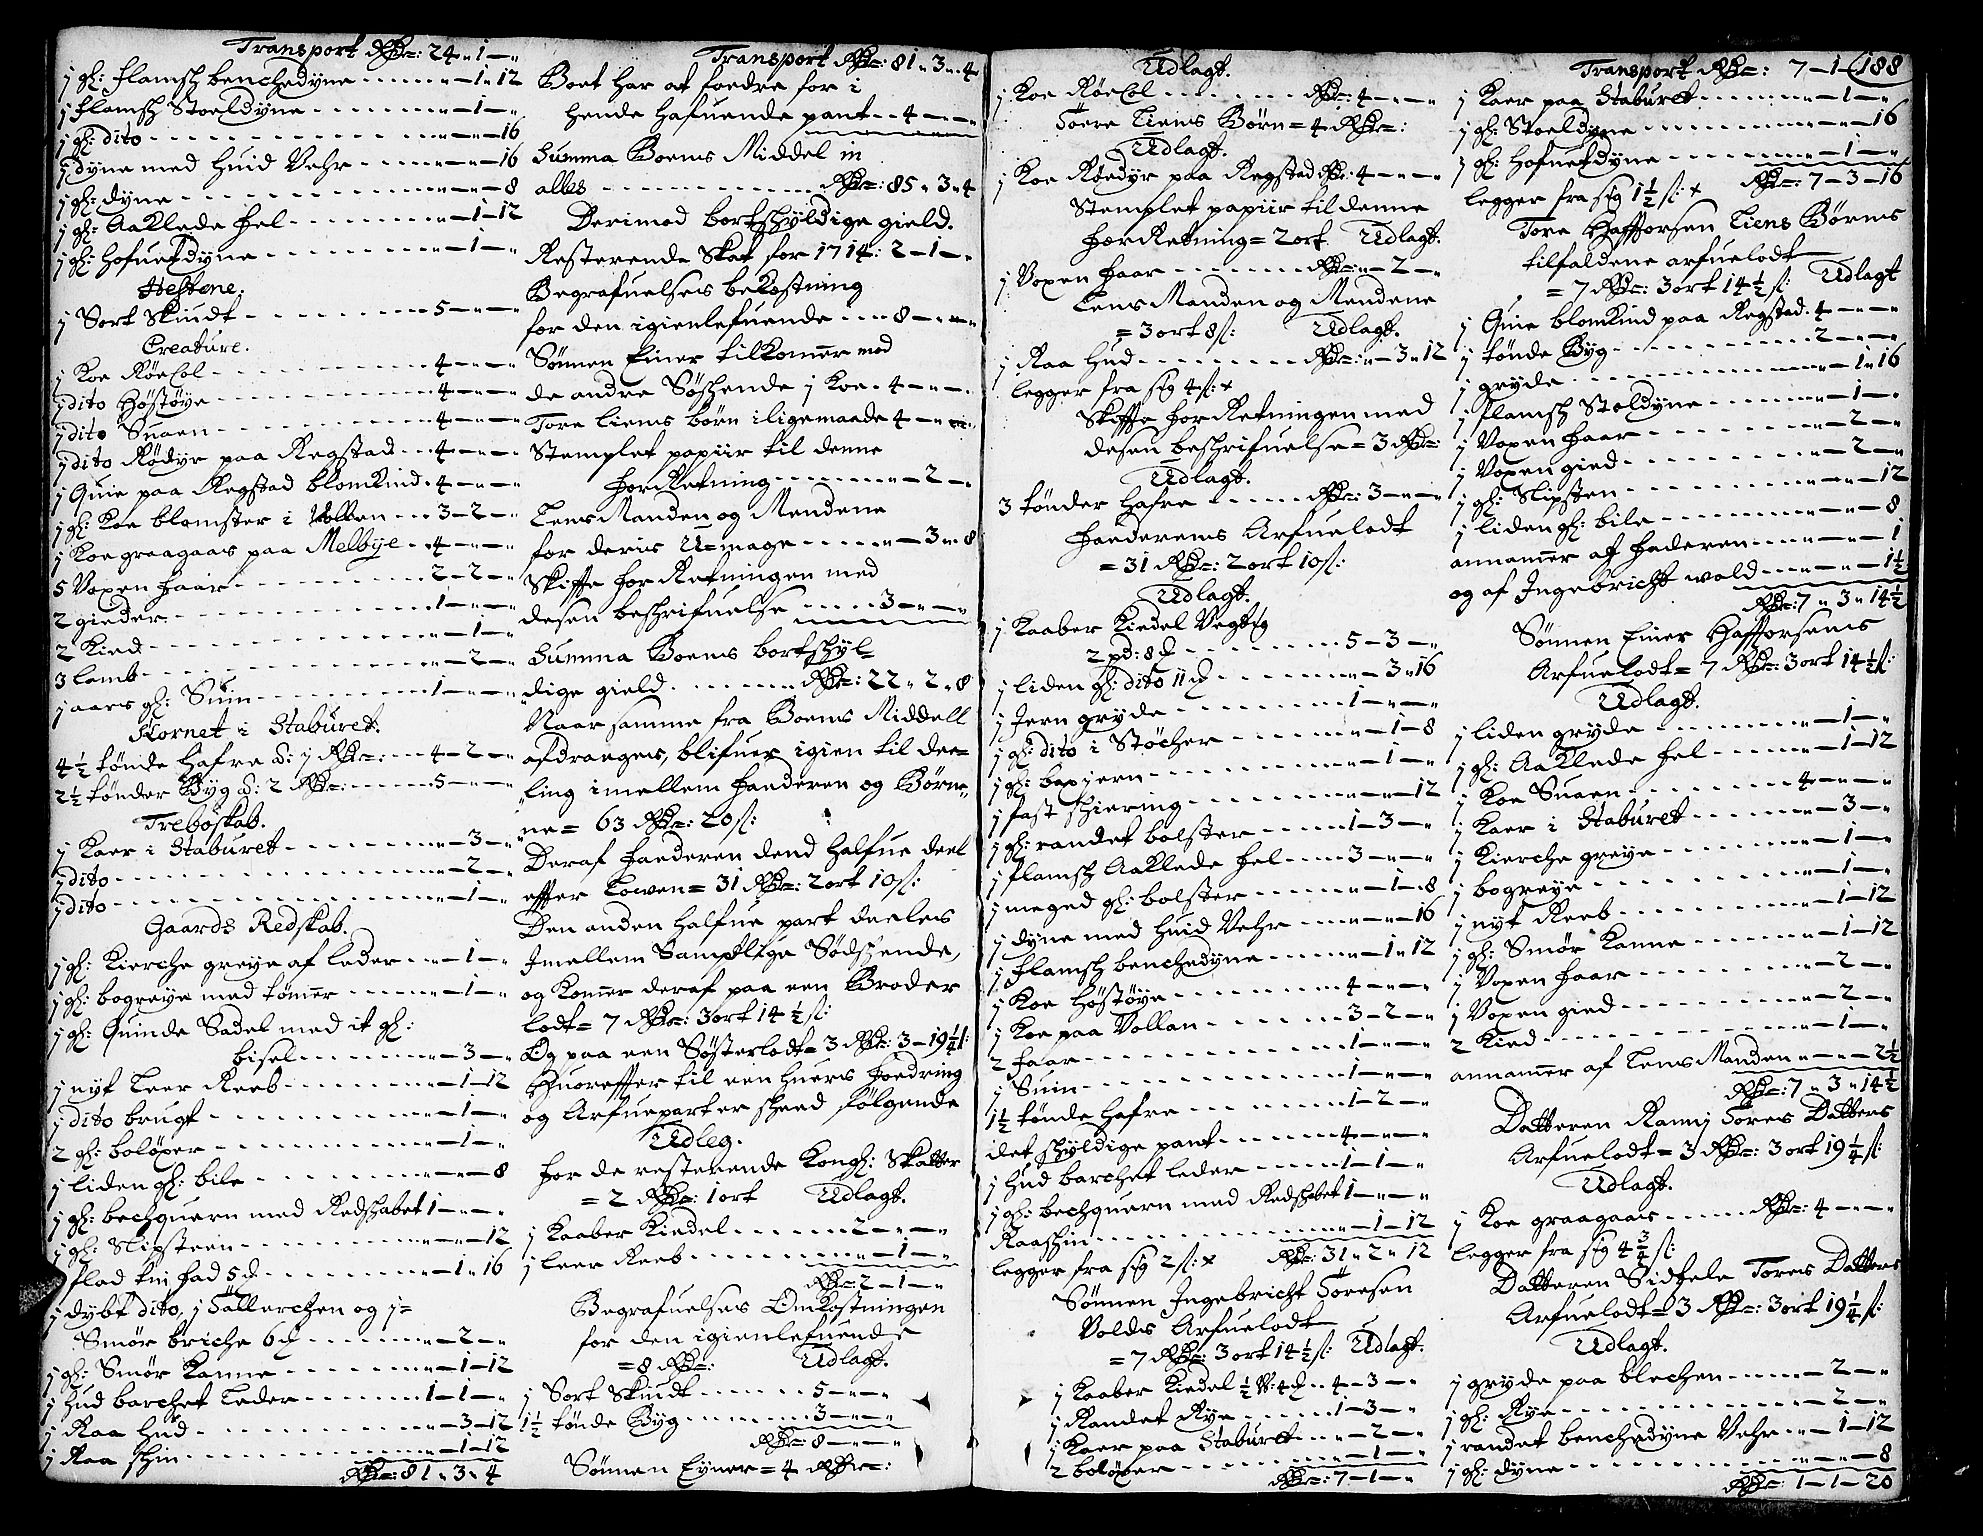 Transport Rdr: 24 " 1 — "
j gl: flamsk benchedyne — 1 " 12
j flamsk Stoeldyne — 1 — "
j gl: dito — " — 16
j dyne med Huid Vehr — " — 16
j gl: dyne — " — 8
j gl: Aaklede fel — 1 — 12
j gl: hofuetdyne — 1 — "
Hestene.
j Sort Skiudt — 5 — " — "
Creature.
j Koe Røecol — 4 — " — "
j dito Høstøye — 4 — " — "
j dito Suaen — 4 — " — "
j dito Rødyr paa Regstad — 4 — " — "
j Quie paa Regstad blomkind — 4 — " — "
j gl: Koe blomster i Vollan — 3 — 2 — "
j Koe graagaas paa Melbye — 4 — " — "
5 Voxen faar — 2 — 2 — "
2 gieder — 1 — " — "
2 Kied — " — 1 — "
3 lamb — " — 2 — "
j aars gl: Suin — 1 — " — "
Kornet i Staburet.
4½ tønde Hafre à: j Rdr: — 4 — 2 — "
2½ tønder Byg à: 2 Rdr: — 5 — " — "
Trebøskab.
j Kaer i Staburet — " — 3 — "
j dito — " — 2 — "
j dito — " — 1 — "
Gaards Redskab.
j gl: Kierche greye af leder — " — 1 — "
j gl: bogreye med tømer — " — 1 — "
j gl: Quinde Sadel med it gl:
bisel — " — 3 — "
j nyt Leer Reeb — " — 1 — 12
j dito brugt — " — 1 — "
2 gl: boløxer — " — 1 — "
j liden gl: bile — " — " — 8
j gl: bechquern med Redskabet 1 — " — "
j gl: Slipsteen — " — " — 12
j flad tin fad 5 d — " — 1 " 16
j dybt dito, j Tallerchen og j=
Smør briche 6 d — " — 2 — "
j gl: Smør Kanne — " — 1 — 12
j Hud barchet Leder — 1 — 1 — "
j Raa Hud — " — 3 — 12
j Raa skin — " — 1 — 12
Rdr: 81 " 3 " 4
Transport Rdr: 81 " 3 " 4
Boet har at foedre for i
hende hafuende pant — 4 — " — "
Summa Boens Middel in
alles — Rdr: 85 " 3 " 4
Derimod bortskyldige gield.
Resterende Skat for 1714: 2 — 1 — "
Begrafuelses bekostning
for den igienlefuende — 8 — " — "
Sønnen Einer tilkomer med
de andre Søskende j Koe — 4 — " — "
Tore Liens børn iligemaade 4 — " — "
Stemplet papiir til denne
forRetning — " — 2 — "
LensManden og Mendene
for deris U=mage — " — 3 " 8
Skiffte forRetningen med
desen beskrifuelse — 3 — " — "
Summa Boens bortskyl=
dige gield — Rdr: 22 " 2 " 8
Naar samme fra Boens Middell
afdrages, blifuer igien til dee=
ling imellem Faederen og Børne=
ne = 63 Rdr: 20 s:
Deraf Faederen dend Halfue deel
effter Lowen = 31 Rdr: 2 ort 10 s:
Den anden Halfue part deeles
Imellem Samptlige Sødskende,
og Komer deraf paa een Broder
lodt = 7 Rdr: 3 ort 14½ s:
Og paa een Søsterlodt = 3 Rdr: 3 — 19¼ s:
Huoreffter til een huers foedring
og Arfuepart er skeed følgende
Udleg.
For de resterende Kongl: Skatter
= 2 Rdr: 1 ort Udlagt.
j Kaaber Kiedel — 2 — " — "
j leer Reeb — " — 1 — "
Rdr: 2 — 1 — "
Begrafuelses Omkostningen
for den igienlefuende
= 8 Rdr: Udlagt.
j Sort Skiudt — 5 — " — "
1½ tønde Byg — 3 — " — "
Rdr: 8 — " — "
Sønnen Eyner = 4 Rdr:
Udlagt.
j Koe Røecol — Rdr: 4 — " — "
Toere Liens Børn = 4 Rdr:
Udlagt.
j Koe Rødyr paa Regstad Rdr: 4 — " — "
Stemplet papiir til denne
forRetning = 2 ort Udlagt.
j Voxen faar — Rdr: " — 2 — "
LensManden og Mendene
= 3 ort 8 s: Udlagt.
j Raa Hud — Rdr: " — 3 " 12
legger fra sig 4 s: x
Skiffte forRetningen med
desen beskrifuelse = 3 Rdr:
Udlagt.
3 tønder Hafre — Rdr: 3 — " — "
Faederens Arfuelodt
= 31 Rdr: 2 ort 10 s:
Udlagt.
j Kaaber Kiedel Vegtig
2 pd: 8 d — 5 — 3 — "
j liden gl: dito 11 d — " — 3 " 16
j Jern gryde — 1 — " — "
j gl: dito i Støcher — " — 1 — 8
j gl: baxjern — " — 1 — "
j fast skiering — " — " — 12
j gl: randet bolster — 1 — 3 — "
j flamsk Aaklede fel — 3 — " — "
j meged gl: bolster — " — 1 — 8
j dyne med Huid Vehr — " — " — 16
j flamsk benchedyne — " — 1 " 12
j Koe Høstøye — 4 — " — "
j Koe paa Vollan — 3 — 2 — "
2 faar — 1 — " — "
j Suin — 1 — " — "
1½ tønde Hafre — 1 — 2 — "
det skyldige pant — 4 — " — "
j Hud barchet leder — 1 — 1 — "
j gl: bechquern med Redskabet 1 — " — "
Raaskin — " — 1 — 12
legger fra sig 2 s: x Rdr: 31 " 2 " 12
Sønnen Ingebricht Toresen
Volds Arfuelodt
= 7 Rdr: 3 ort 14½ s: Udlagt.
j Kaaber Kiedel ½ V: 4 d — 4 — 3 — "
j Randet Rye — 1 — 3 — "
j Kaer paa Staburet — " — 2 — "
2 boløxer — " — 1 — "
Rdr: 7 — 1 — "
Transport Rdr: 7 — 1 — "
188
j Kaer paa Staburet — " — 1 — "
j gl: Stoeldyne — " — " — 16
j gl: Hofuetdyne — " — 1 — "
legger fra sig 1½ s: x Rdr: 7 — 3 — 16
Tore Haftorsen Liens Børns
tilfaldene arfuelodt
= 7 Rdr: 3 ort 14½ s: Udlagt
j Quie blomkind paa Regstad. 4 — " — "
j tønde Byg — 2 — " — "
j gryde — " — 1 " 16
j flamsk Stoldyne — " — 1 — "
j Voxen faar — " — 2 — "
j Voxen gied — " — 2 — "
j gl: Slipsten — " — " — 12
j liden gl: bile — " — " — 8
annamer af faderen — " — " — 1
og af Ingebricht wold — " — " — 1½
Rdr: 7 " 3 " 14½
Sønnen Einer Haftorsens
Arfuelodt = 7 Rdr: 3 ort 14½ s:
Udlagt.
j liden gryde — " — 1 — "
j gl: Aaklede fel — " — 1 — 12
j Koe Suaen — 4 — " — "
j Kaer i Staburet — " — 3 — "
j Kierche greye — " — 1 — "
j bogreye — " — 1 — "
j nyt Reeb — " — 1 — 12
j gl: Smør Kanne — " — 1 — 12
j Voxen faar — " — 2 — "
j Voxen gied — " — 2 — "
2 Kied — " — 1 — "
annamer af LensManden " — " — 2½
Rdr: 7 " 3 " 14½
Datteren Ranni Tores Datters
Arfuelodt = 3 Rdr: 3 ort 19¼ s:
Udlagt.
j Koe graagaas — Rdr: 4 — " — "
legger fra sig 4¾ s:
Datteren Sidsele Tores Datters
Arfuelodt = 3 Rdr: 3 ort 19¼ s:
Udlagt.
j gryde paa blechen — " — 2 — "
j gl: Rye — " — 2 — "
j randet benchedyne Vehr — " — 1 — 12
j gl: dyne — " — " — 8
Rdr: 1 — 1 — 20